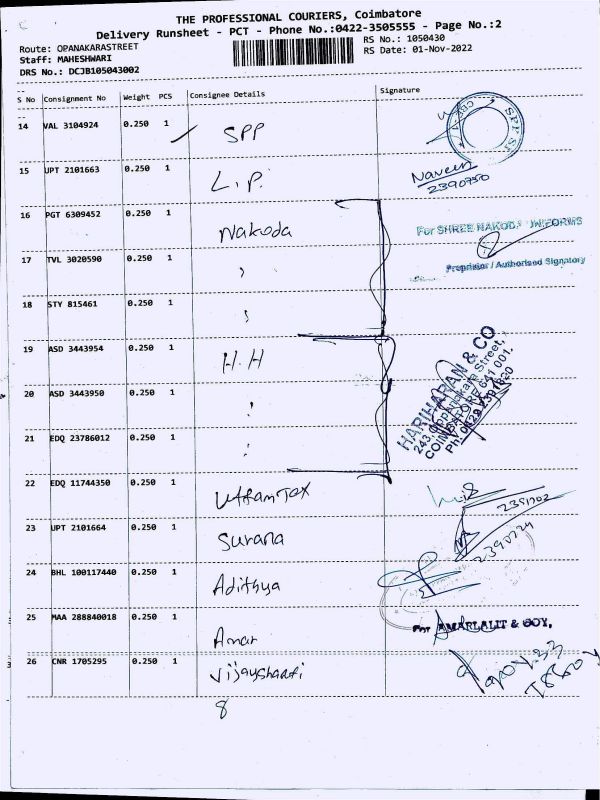 THE PROFESSIONAL COURIERS, Coimbatore
Delivery Runsheet - PCT - Phone No.:0422-3505555 - Page No.:2
Route: OPANAKARASTREET
RS No.: 1050430
Staff: MAHESHWARI
RS Date: 01-Nov-2022
DRS No.: DCJB105043002
S No Consignment No Weight PCS Consignee Details Signature
14 VAL 3104924 0.250 1 SPP
15 UPT 2101663 0.250 1 L.P. Naveen
2390750
16 PGT 6309452 0.250 1 Nakoda For SHREE NAKODA UNIFORMS
17 TVL 3020590 0.250 1 " Proprietor / Authorised Signatory
18 STY 815461 0.250 1 "
19 ASD 3443954 0.250 1 H.H
HARIHARAN & CO
243, Oppanakara Street,
COIMBATORE 641 001.
20 ASD 3443950 0.250 1 "
21 EDQ 23786012 0.250 1 "
22 EDQ 11744350 0.250 1 UttamTex
23 UPT 2101664 0.250 1 Surana 2390724
24 BHL 100117440 0.250 1 Adithya
25 MAA 288840018 0.250 1 Amar For AMARLALIT & BOY,
26 CNR 1705295 0.250 1 Vijayshanti
8